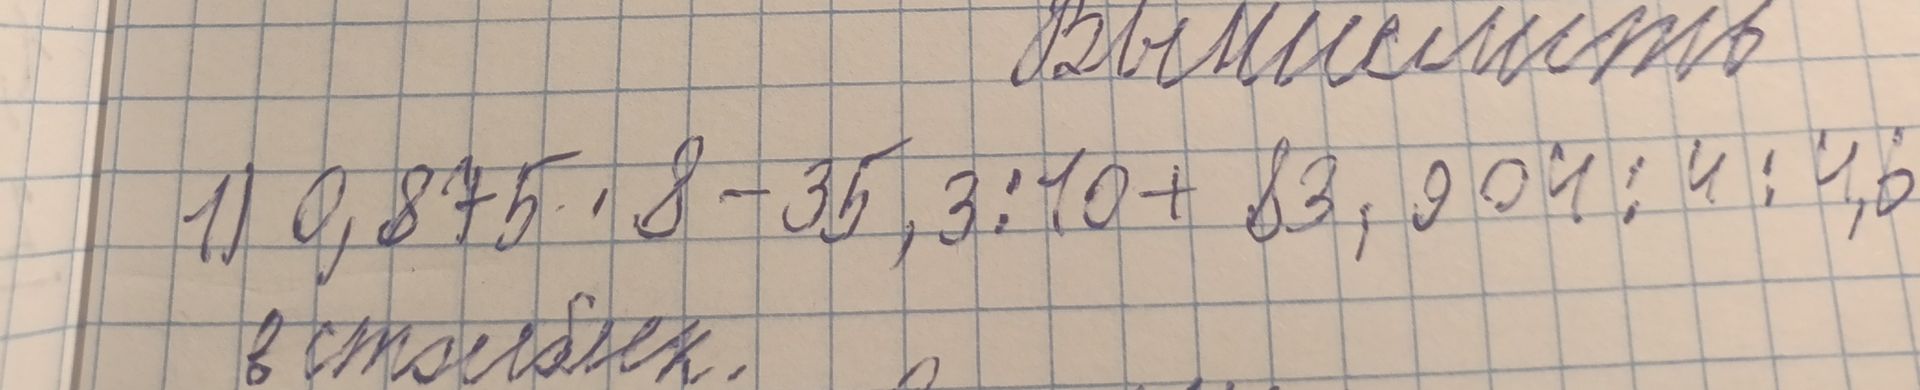 Вычислить
1) 0,875 · 8 - 35,3 : 10 + 83,904 : 4 : 4,6
в столбик.